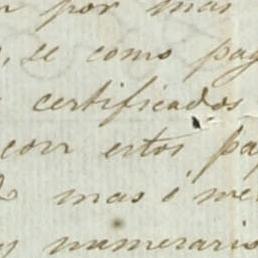 por mas
se como pag
certificados
con estos pa
mas ó me
numerario